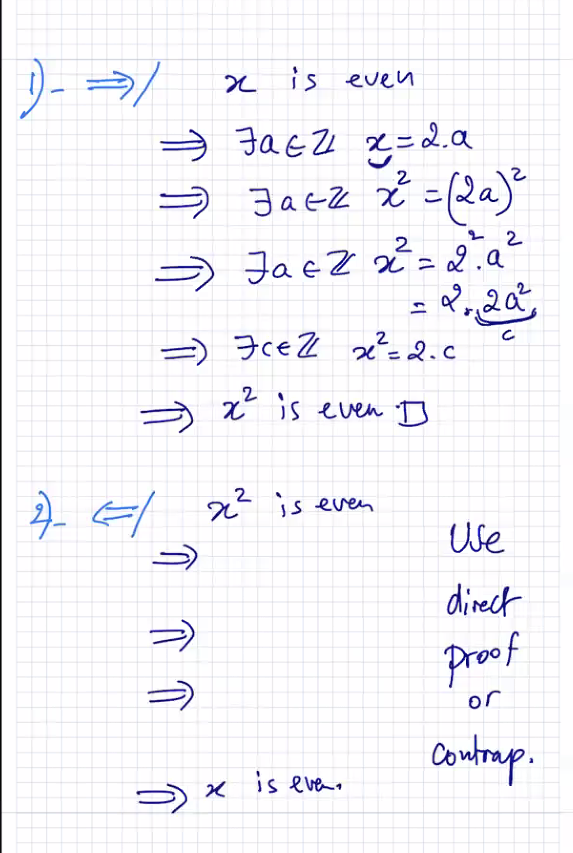 1)- ⟹/ x is even
⟹ ∃a∈ℤ x=2.a
⟹ ∃a∈ℤ x²=(2a)²
⟹ ∃a∈ℤ x²=2².a²
=2.2a²
c
⟹ ∃c∈ℤ x²=2.c
⟹ x² is even □
2)- ⟸/ x² is even
⟹
⟹
⟹
⟹ x is even.
Use
direct
proof
or
contrap.